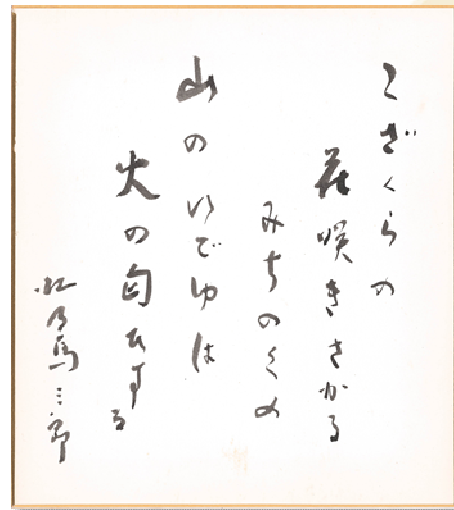 こざくらの
花咲きさかる
みちのくの
山のいでゆは
火の匂ひする